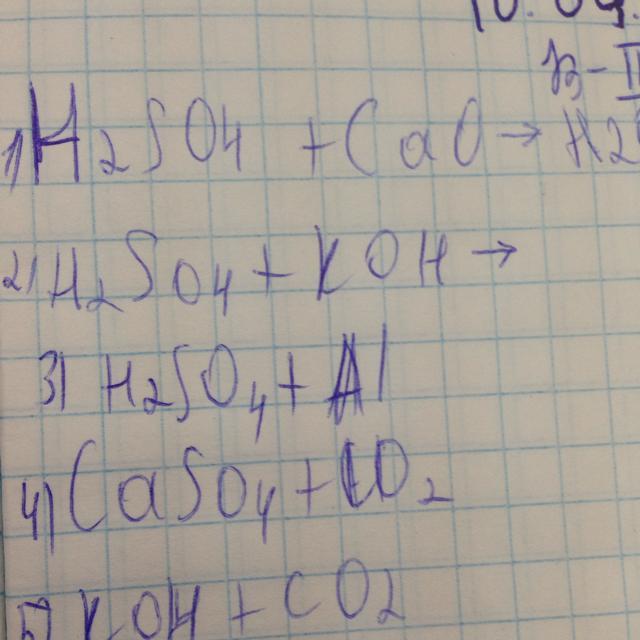 10.04
1) H2SO4 + CaO → H2O
2) H2SO4 + KOH →
3) H2SO4 + Al
4) CaSO4 + CO2
5) KOH + CO2